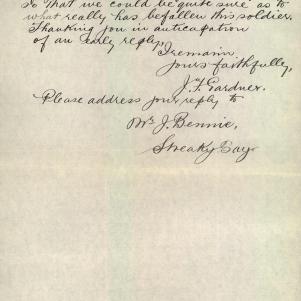 so that we could be quite sure as to
what really has befallen this soldier.
Thanking you in anticipation
of an early reply,
I remain
Yours faithfully,
J. F. Gardner.
Please address your reply to
Mrs J. Bennie,
Streaky Bay